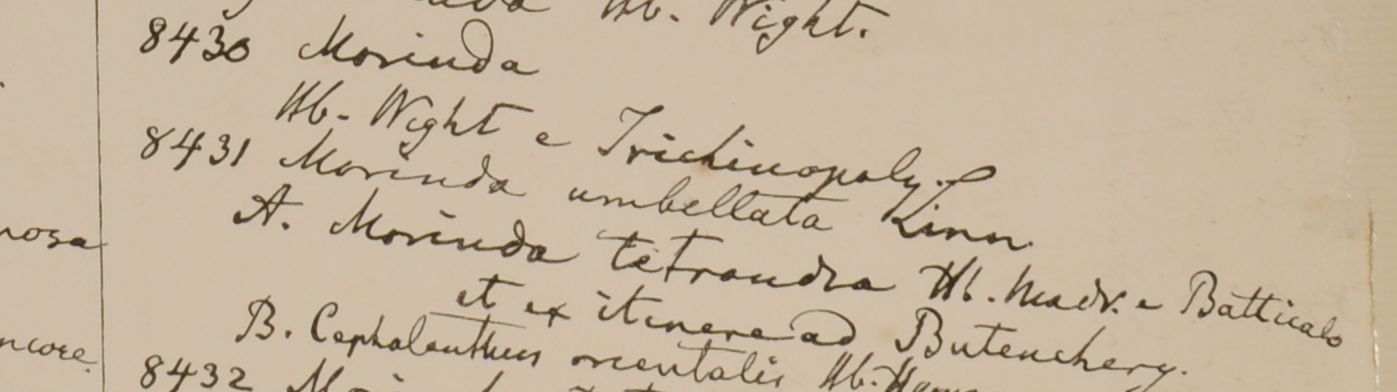 Hb. Wight.
8430 Morinda
Hb. Wight e Trichinopoly.
8431 Morinda umbellata Linn.
A. Morinda tetrandra Hb. Madr. e Batticalo
et ex itinere ad Butenchery.
B. Cephalanthus orientalis Hb.
8432